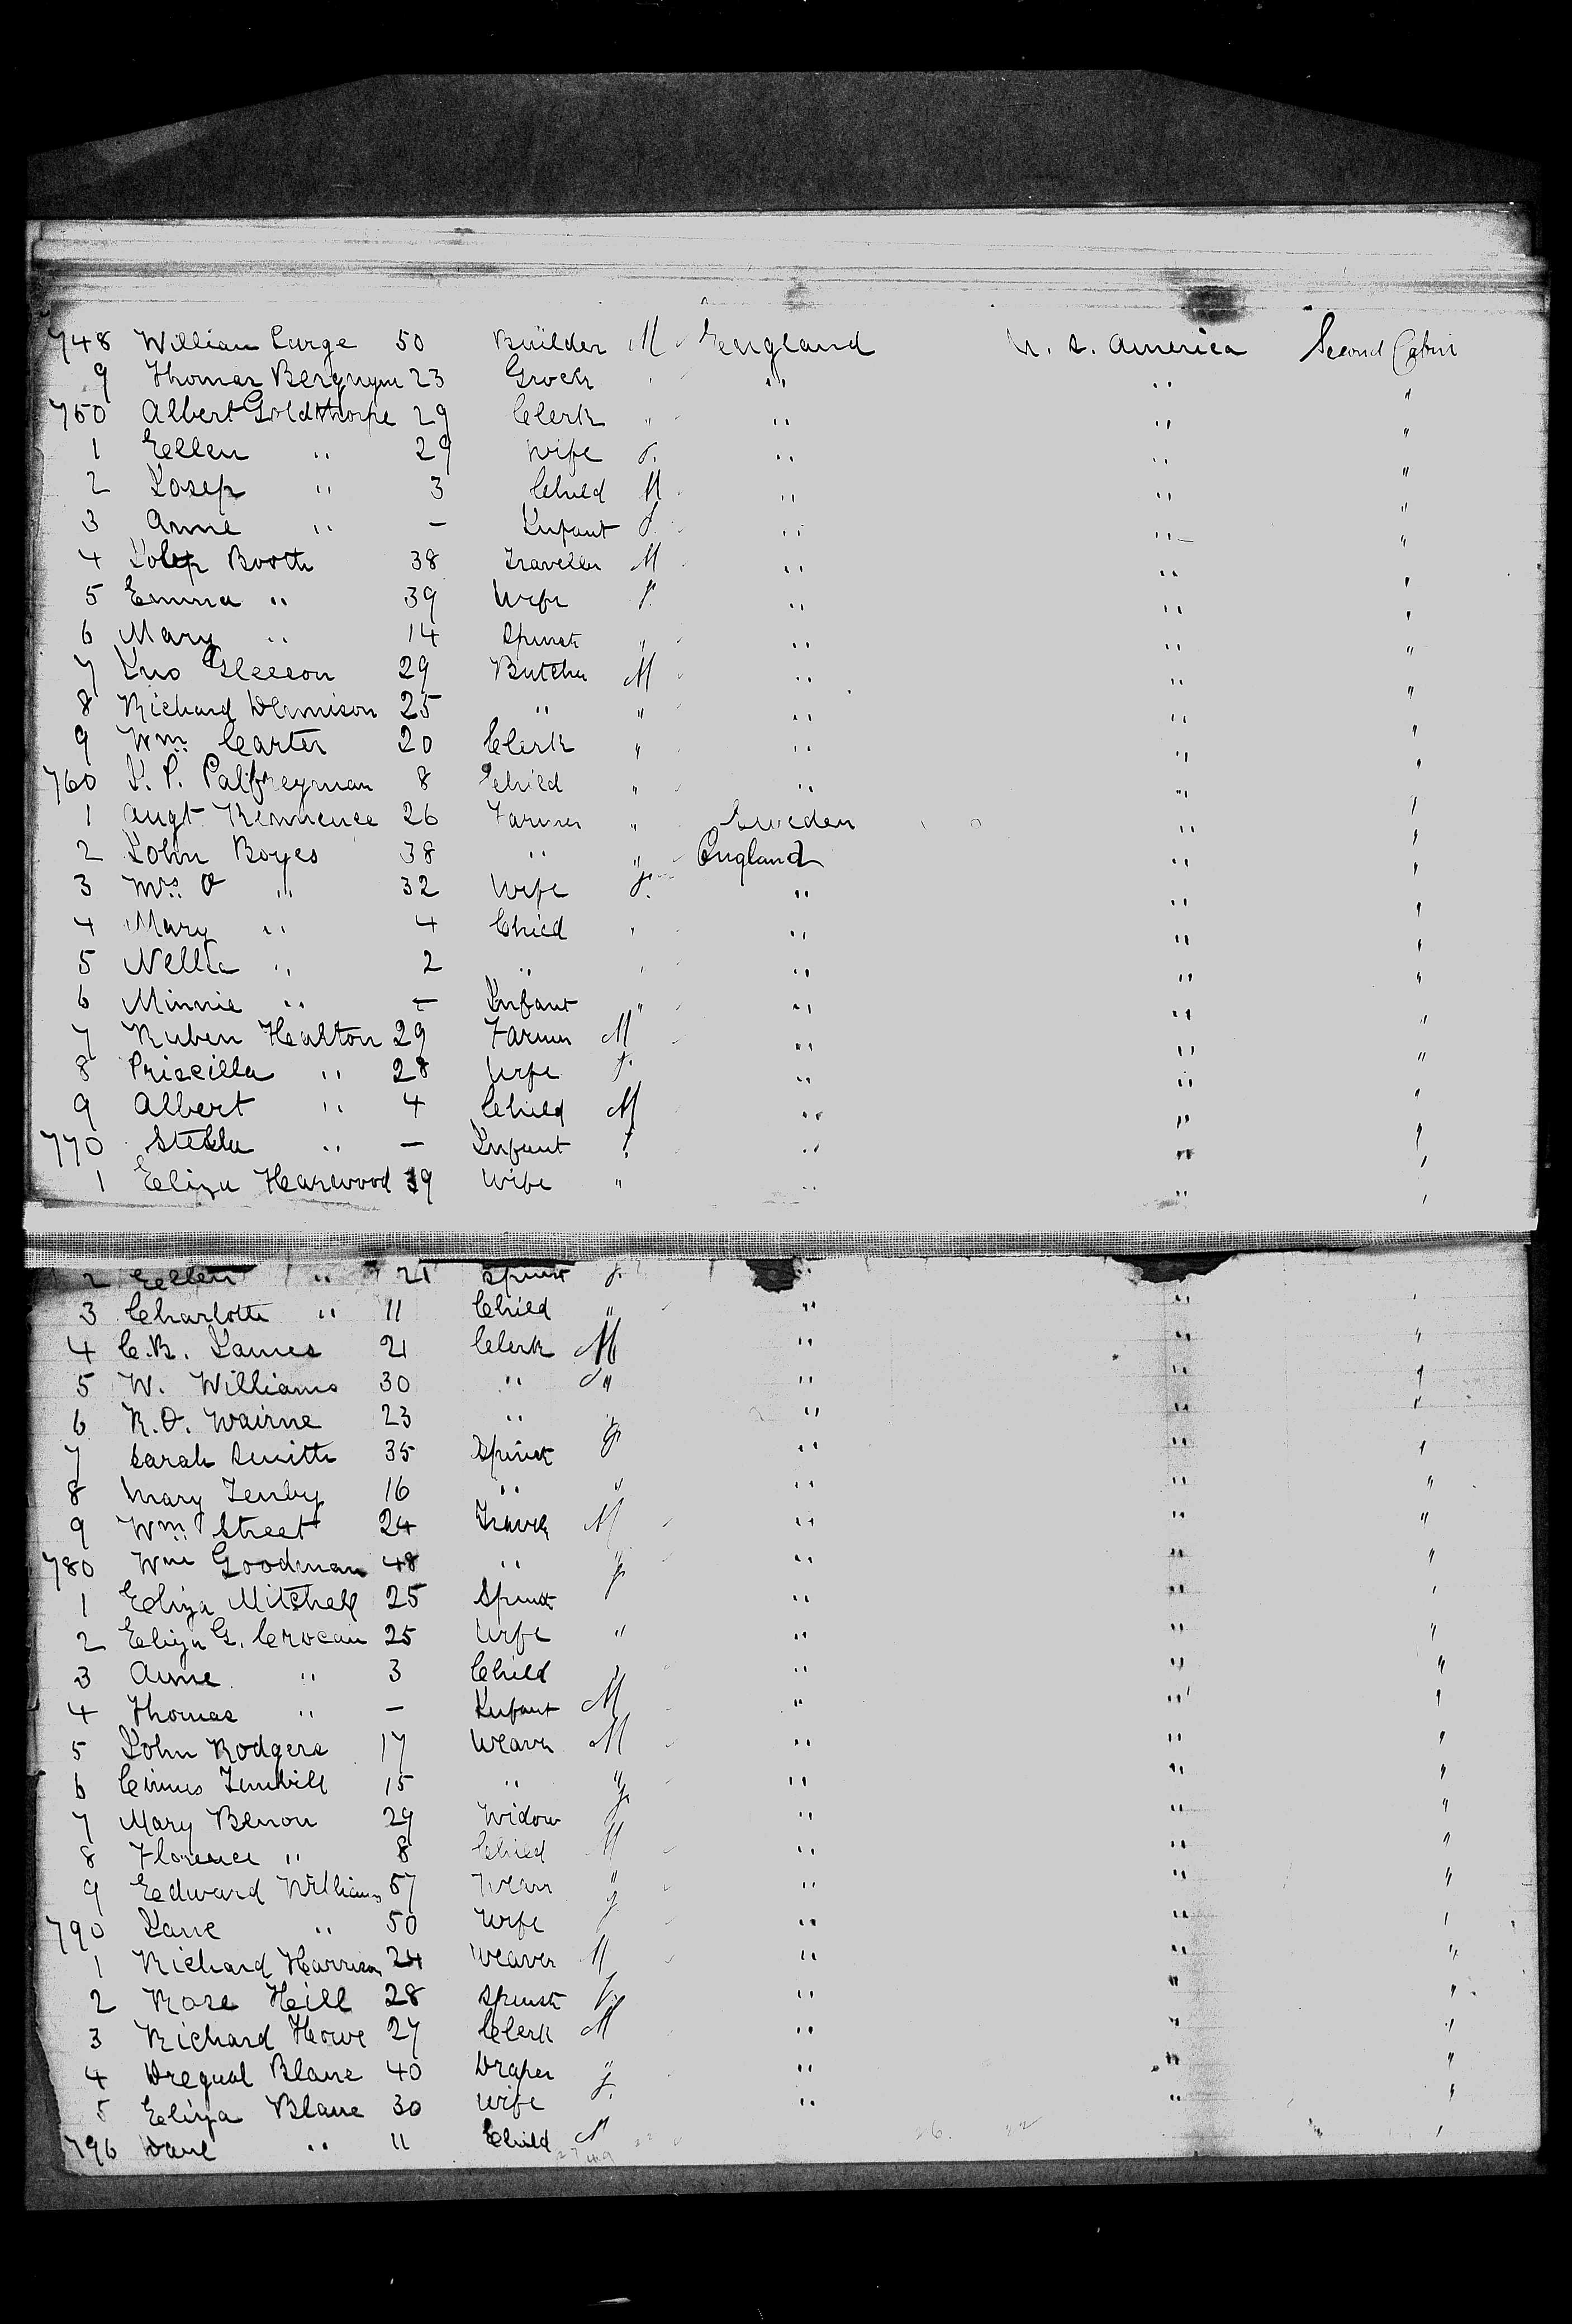 748 William Large 50 Builder M England U. S. America Second Cabin
9 Thomas 23 " " "
750 Albert Goldthorpe 29 Clerk " " " "
1 Eellen " 29 Wife f. " " "
2 Josep " 3 Child M " " "
3 Anne " – Infant f. " " "
4 Booth 38 Traveller M " " "
5 Emma " 39 Wife f. " " "
6 Mary " 14 Spinst " " " "
7 Jno Gleeson 29 Butcher M " " "
8 Richard Dennison 25 " " " " "
9 Wm. Carter 20 Clerk " " " "
760 J. P. Palfreyman 8 Child " " " "
1 Augt 26 Farmer " Sweden " "
2 John Boyes 38 " " England " "
3 Mrs. O " 32 Wife f. " " "
4 Mary " 4 Child " " " "
5 Nellie " 2 " " " " "
6 Minnie " – Infant " " " "
7 Ruben Healton 29 Farmer M " " "
8 Priscilla " 28 Wife f. " " "
9 Albert " 4 Child M " " "
770 Stella " – Infant f " " "
1 Eliza Hearwood 39 Wife " " " "
2 Eellen " 21 Spinst f. "
3 Charlotte " 11 Child " " " "
4 C.R. James 21 Clerk M " " "
5 W. Williams 30 " " " " "
6 R.O. Wairne 23 " " " " "
7 Sarah Smith 35 Spinst f " " "
8 Mary Tenby 16 " " " " "
9 Wm Street 24 M " " "
780 Wm Goodman 48 " " " " "
1 Eliza Mitchell 25 Spinst f " " "
2 Eliza G. Crocain 25 Wife " " " "
3 Anne " 3 Child " " " "
4 Thomas " – Infant M " " "
5 John Rodgers 17 Weaver M " " "
6 15 " " " " "
7 Mary Benon 29 Widow f. " " "
8 Florence " 8 Child M " " "
9 Eedward Williams 57 " " " "
790 Jane " 50 Wife f " " "
1 Richard Harrison 24 Weaver M " " "
2 Rose Heill 28 Spinst f. " " "
3 Richard Howe 27 Clerk M " " "
4 Blane 40 Draper " " " "
5 Eliza Blane 30 Wife f. " " "
796 " 11 Child M "